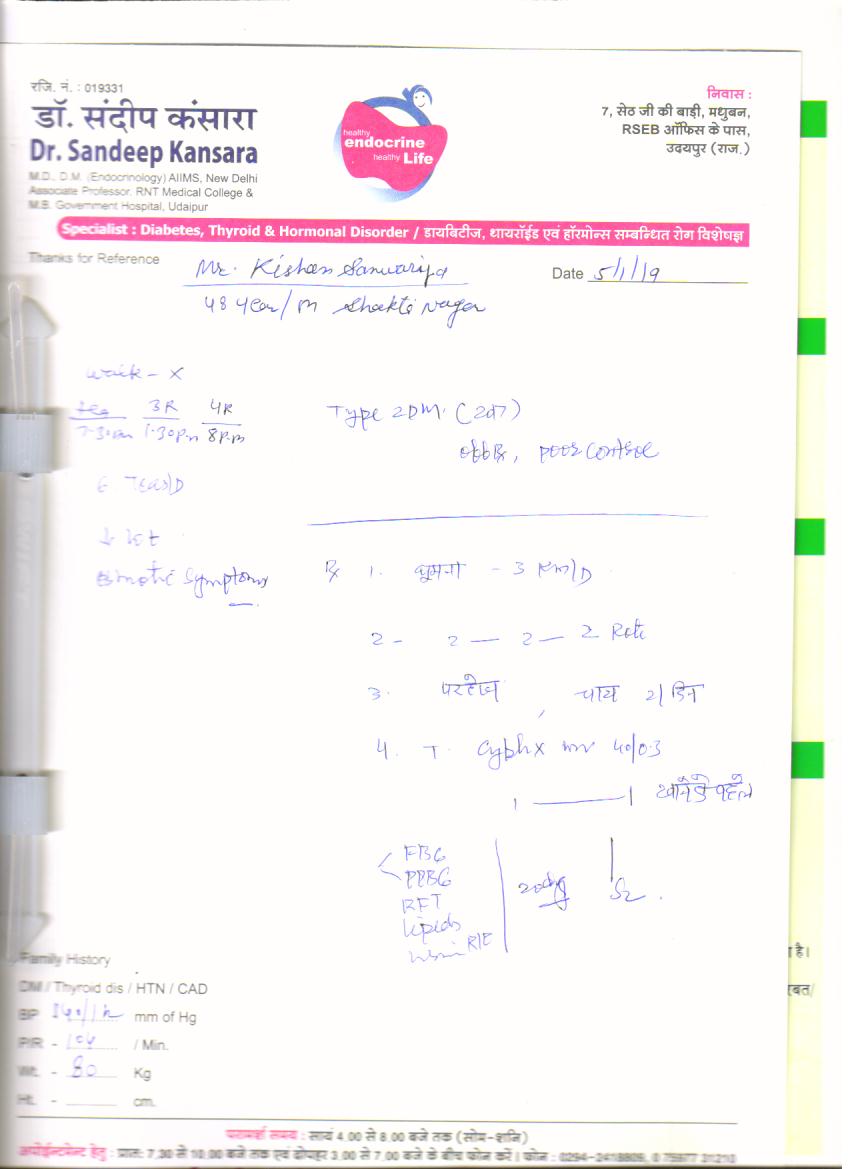 रजि. नं. : 019331
डॉ. संदीप कंसारा
Dr. Sandeep Kansara
M.D., D.M. (Endocrinology) AIIMS, New Delhi
Associate Professor, RNT Medical College &
M.B. Government Hospital, Udaipur
healthy
endocrine
healthy Life
निवास :
7, सेठ जी की बाड़ी, मधुबन,
RSEB ऑफिस के पास,
उदयपुर (राज.)
Specialist : Diabetes, Thyroid & Hormonal Disorder / डायबिटीज, थायरॉईड एवं हॉरमोन्स सम्बन्धित रोग विशेषज्ञ
Thanks for Reference
Mr. Kishan Sanwariya
Date 5/1/19
48 year/m Shakti Nagar
walk - X
3R 4R
7.30am 1.30p.m 8p.m
Type 2DM. (2017)
off Rx, poor control
6. Teas/D
↓ wt
osmotic symptoms
Rx 1. घूमना - 3 Km/D
2 - 2 — 2 — 2 Roti
3. परहेज, चाय 2/दिन
4. T. 40/0.3
1 ——— 1 खाने से पहले
FBG
PPBG
RFT
Lipids
Urine R/E
Family History
DM / Thyroid dis / HTN / CAD
BP mm of Hg
P/R - 104 / Min.
Wt. - 80 Kg
Ht. - cm.
है।
रबत/
परामर्श समय : सायं 4.00 से 8.00 बजे तक (सोम-शनि)
अपोईन्टमेन्ट हेतु : प्रातः 7.30 से 10.00 बजे तक एवं दोपहर 3.00 से 7.00 बजे के बीच फोन करें। फोन : 0294-2418809, 0 75977 31210